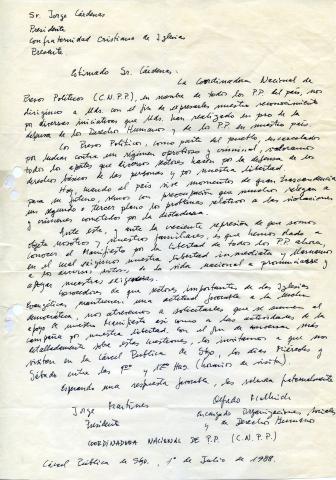 Sr. Jorge Cárdenas
Presidente
Confraternidad Cristiana de Iglesias
Presente
Estimado Sr. Cárdenas.
La Coordinadora Nacional de
Presos Políticos (C.N.P.P.), en nombre de todos los P.P. del país, nos
dirigimos a Uds. con el fin de expresarles nuestro reconocimiento
por diversas iniciativas que Uds. han realizado en pro de la
defensa de los Derechos Humanos y de los P.P. en nuestro país.
Los Presos Políticos, como parte del pueblo, encarcelados
por luchar contra un régimen opresivo y criminal, valoramos
todos los aportes que diversos sectores hacen por la defensa de los
derechos de las personas y por nuestra libertad.
Hoy, cuando el país vive momentos de gran trascendencia
para su futuro, vemos con preocupación que muchos relegan a
un segundo o tercer plano los problemas relativos a las violaciones
y crímenes cometidos por la dictadura.
Ante esto, y ante la reciente represión de que somos
objeto nosotros y nuestros familiares, es que hemos dado a
conocer el Manifiesto por la Libertad de todos los P.P. ahora,
en el cual exigimos nuestra libertad inmediata y llamamos
a los diversos sectores de la vida nacional a pronunciarse y
apoyar nuestras exigencias.
Conocedores de que sectores importantes de las Iglesias
Evangélicas, mantienen una actitud favorable a la lucha
democrática, nos atrevemos a solicitarles que se sumen al
apoyo de nuestro Manifiesto así como a las actividades de la
campaña por nuestra libertad. Con el fin de conversar más
detalladamente sobre estas cuestiones, los invitamos a que nos
visiten en la Cárcel Pública de Stgo, los días Miércoles y
Sábado entre las y Hrs. (horario de visita).
Esperando una respuesta favorable, les saludan fraternalmente
Jorge Martínez
Presidente
Alfredo
encargado Organizaciones Sociales
y de Derechos Humanos
COORDINADORA NACIONAL DE P.P. (C.N.P.P.)
Cárcel Pública de Stgo, 1° de Julio de 1988.